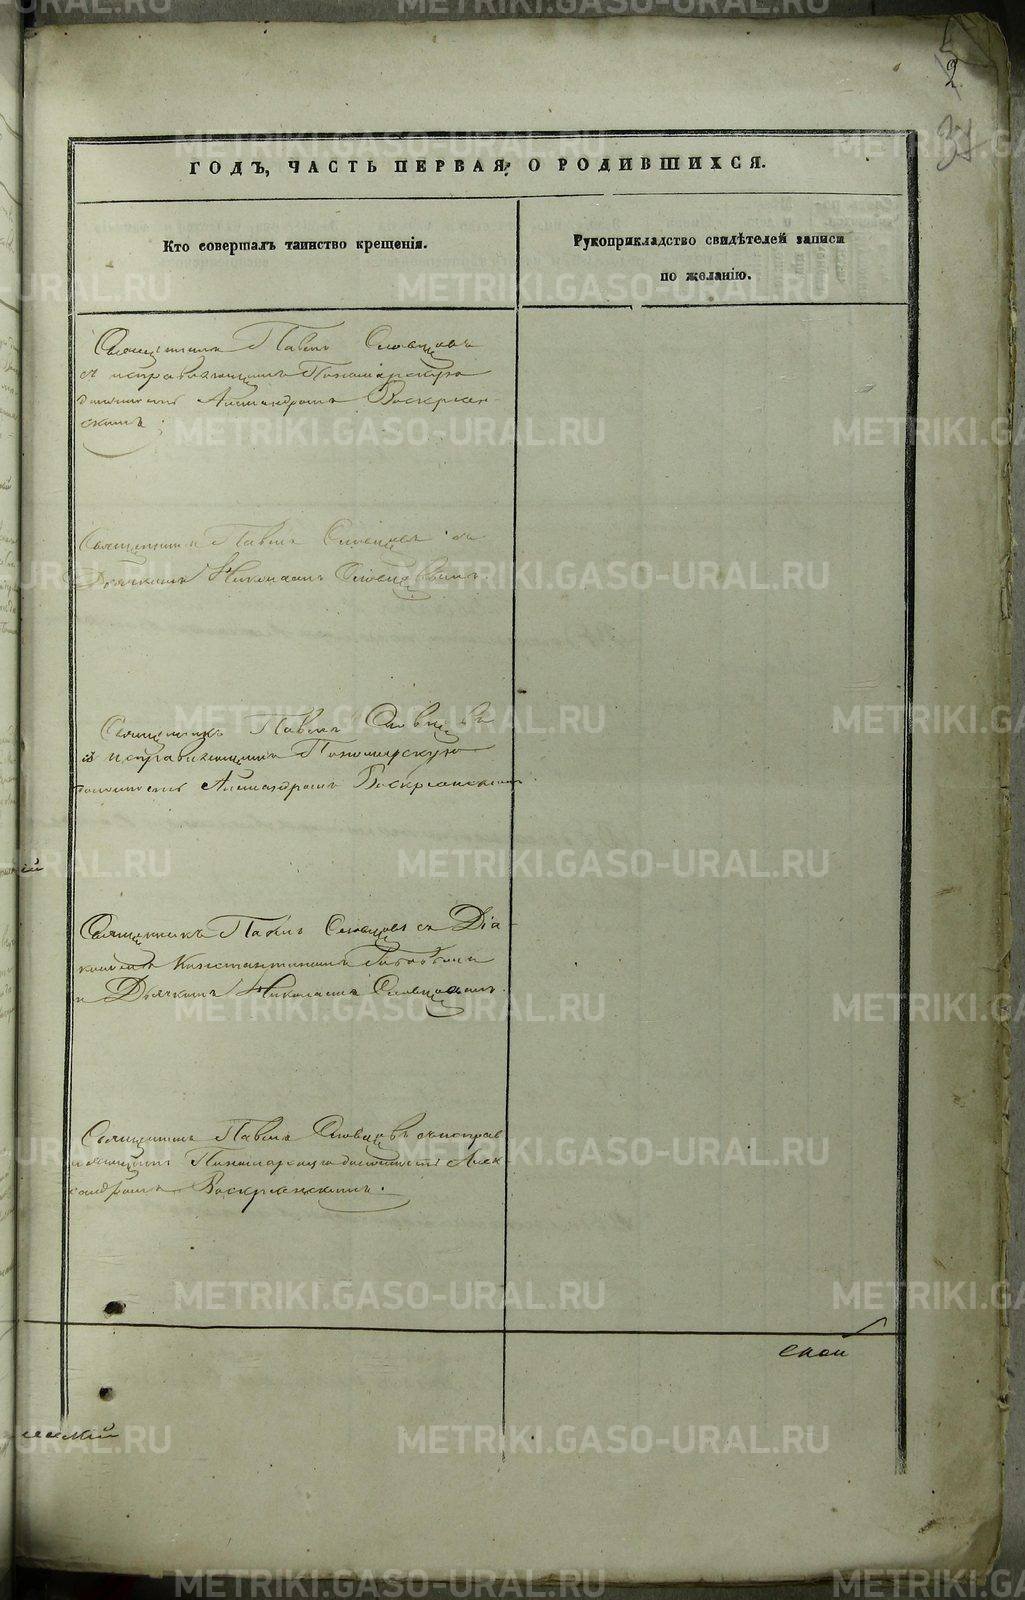 2
31
ГОДЪ, ЧАСТЬ ПЕРВАЯ, О РОДИВШИХСЯ.
Кто совершалъ таинство крещенія.
Рукоприкладство свидѣтелей записи
по желанію.
Священникъ Павелъ Словцовъ
съ исправляющимъ Пономарскую
должность Александромъ Воскресен-
скимъ;
Священникъ Павелъ Словцовъ съ
Дьячкомъ Николаемъ Словцовымъ.
Священникъ Павелъ Словцовъ
съ исправляющимъ Пономарскую
должность Александромъ Воскресенскимъ.
Священникъ Павелъ Словцовъ съ Діа-
кономъ Константиномъ
и Дьячкомъ Николаемъ Словцовымъ.
Священникъ Павелъ Словцовъ съ исправ
ляющимъ Пономарскую должность Алек-
сандромъ Воскресенскимъ.
ской
METRIKI.GASO-URAL.RU